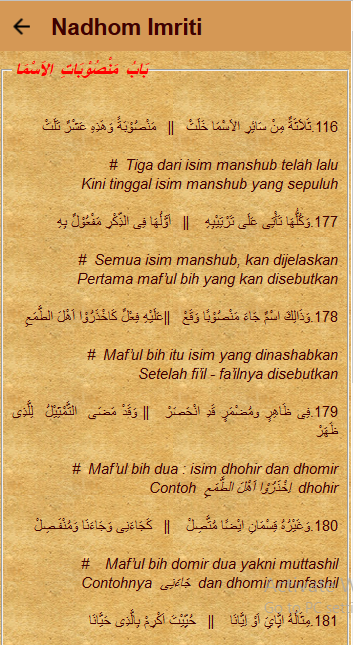 Nadhom Imriti
بَابُ مَنْصُوْبَاتِ الْاَسْمَا
116.ثَلَاثَةٌ مِنْ سَائِرِ الْاَسْمَا خَلَتْ || مَنْصُوْبَةٌ وَهَذِهِ عَشْرٌ تَلَتْ
# Tiga dari isim manshub telah lalu
Kini tinggal isim manshub yang sepuluh
177.وَكُلُّهَا تَأْتِى عَلَى تَرْتِيْبِهِ || اَوَّلُهَا فِى الذِّكْرِ مَفْعُوْلٌ بِهِ
# Semua isim manshub, kan dijelaskan
Pertama maf'ul bih yang kan disebutkan
178.وَذَالِكَ اسْمٌ جَاءَ مَنْصُوْبًا وَقَعْ ||عَلَيْهِ فِعْلٌ كَاحْذَرُوْا اَهْلَ الطَّمَعِ
# Maf'ul bih itu isim yang dinashabkan
Setelah fi'il - fa'ilnya disebutkan
179.فِى ظَاهِرٍ ومُضْمَرٍ قَدِ انْحَصَرْ || وَقَدْ مَضَى التَّمْثِيْلُ لِلَّذِى
ظَهَرْ
# Maf'ul bih dua : isim dhohir dan dhomir
Contoh اِحْذَرُوْا اَهْلَ الطَّمَعِ dhohir
180.وَغَيْرُهُ قِسْمَانِ اَيْضًا مُتَّصِلْ || كَجَاءَنِى وَجَاءَنَا وَمُنْفَصِلْ
# Maf'ul bih domir dua yakni muttashil
Contohnya جَاءَنِى dan dhomir munfashil
181.مِثَالُهُ اِيَّايَ اَوْ اِيَّانَا || حُيِّيْتَ اَكْرِمْ بِالَّذِى حَيَّانَا